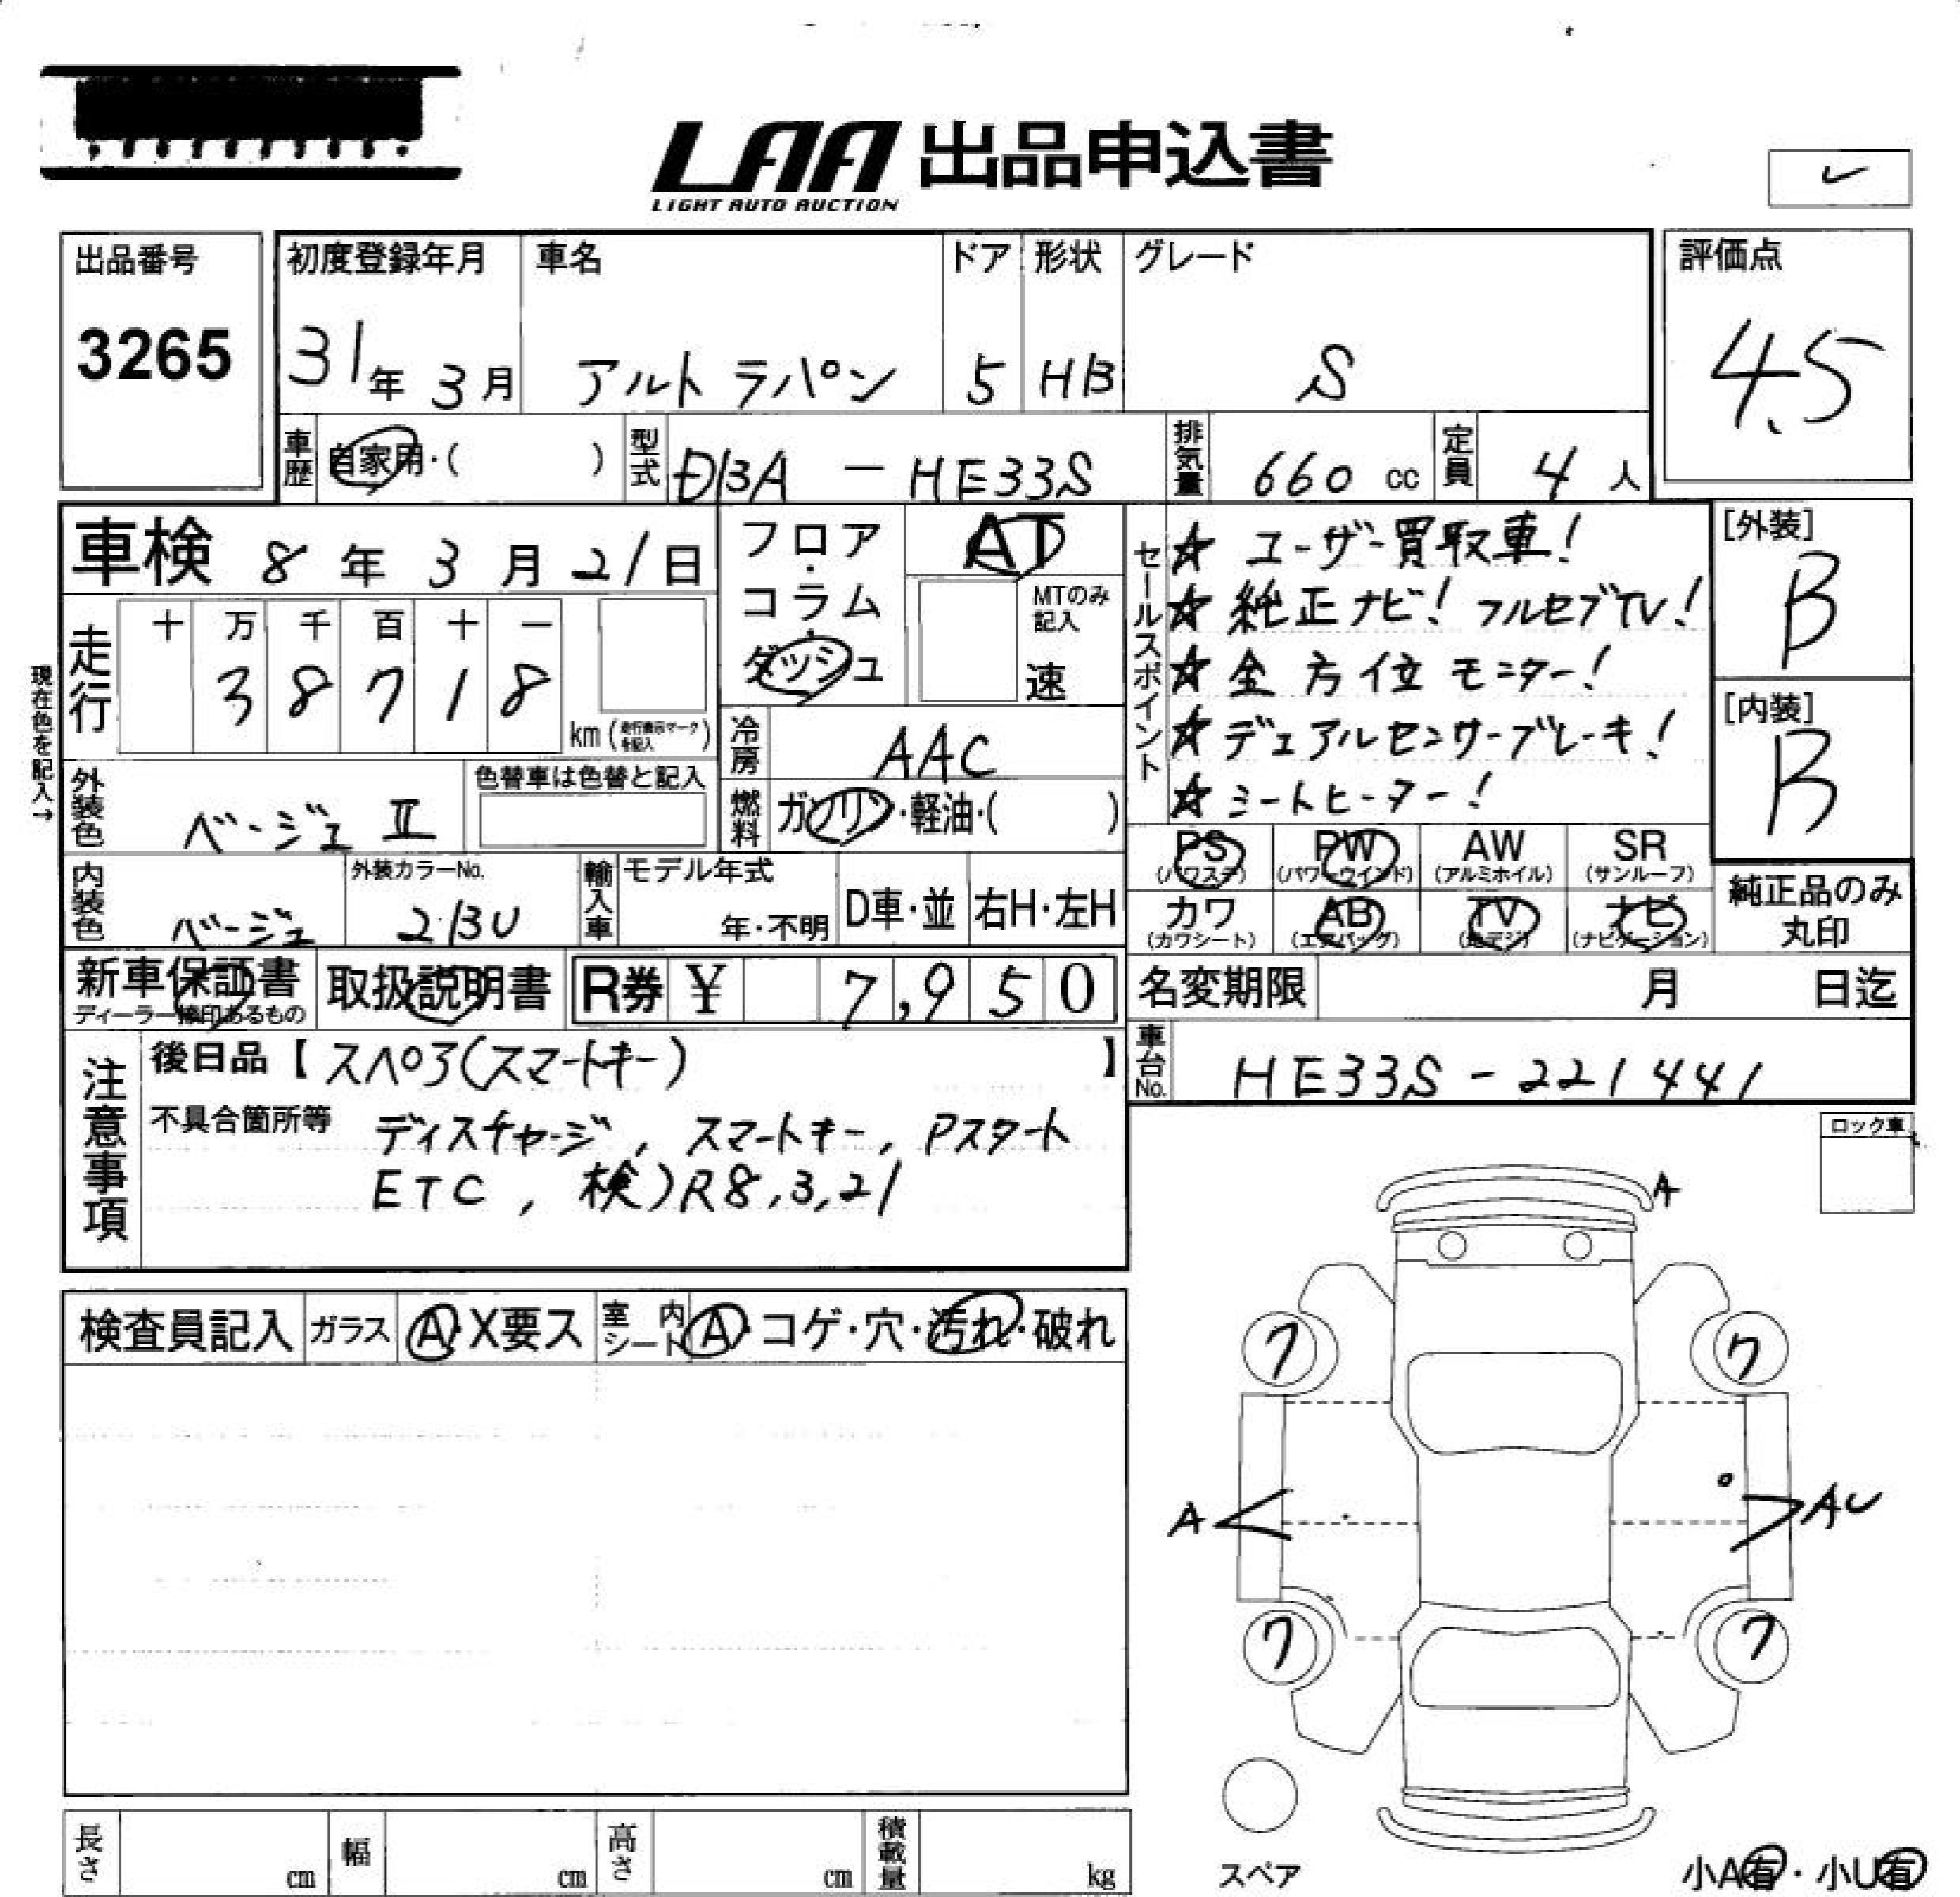 LAA 出品申込書
LIGHT AUTO AUCTION
出品番号
3265
初度登録年月
31年 3月
車名
アルト ラパン
ドア
5
形状
HB
グレード
S
評価点
4.5
車歴
自家用・( )
型式
DBA - HE33S
排気量
660 cc
定員
4 人
車検 8年 3月 21日
フロア・コラム・ダッシュ
AT
MTのみ記入
速
走行
十 万 千 百 十 一
3 8 7 1 8
km (走行表示マークを記入)
現在色を記入→
セールスポイント
☆ ユーザー買取車!
☆ 純正ナビ! フルセブTV!
☆ 全方位モニター!
☆ デュアルセンサーブレーキ!
☆ シートヒーター!
[外装]
B
[内装]
B
冷房
AAC
燃料
ガソリン・軽油・( )
外装色
ベージュ II
色替車は色替と記入
内装色
ベージュ
外装カラーNo.
2BU
輸入車
モデル年式
年・不明
D車・並
右H・左H
PS (パワステ)
PW (パワーウインド)
AW (アルミホイル)
SR (サンルーフ)
カワ (カワシート)
AB (エアバッグ)
TV (地デジ)
ナビ (ナビゲーション)
純正品のみ丸印
新車保証書
ディーラー捺印あるもの
取扱説明書
R券 ¥ 7,950
名変期限 月 日迄
車台No.
HE33S-221441
注意事項
後日品【スペア(スマートキー) 】
不具合箇所等
ディスチャージ, スマートキー, Pスタート
ETC, 検)R8,3,21
ロック車
検査員記入
ガラス
A・X要ス
室内シート
A・コゲ・穴・汚れ・破れ
A
ワ ワ
A AU
ワ ワ
スペア
小A有・小U有
長さ cm
幅 cm
高さ cm
積載量 kg